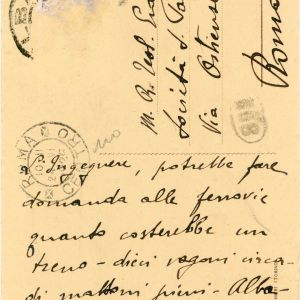 Società S. Pa
Via Ostiense
Roma
ROMA
Ingegnere, potrebbe fare
domanda alle ferrovie
quanto costerebbe un
treno - dieci vagoni circa
di mattoni pieni - Alba-